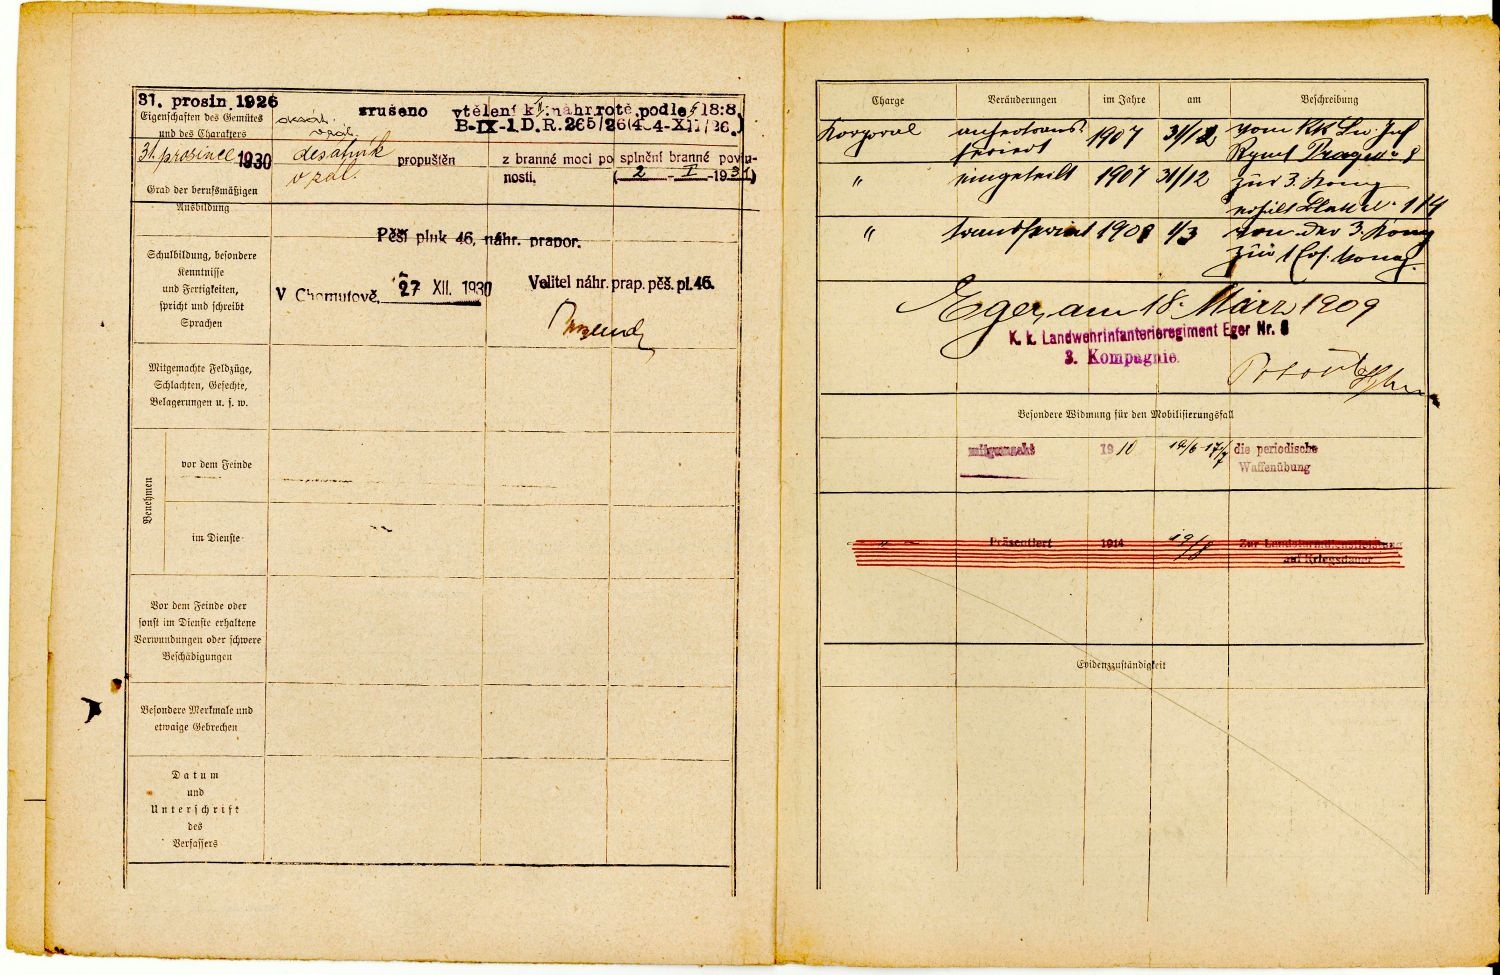 31. prosin. 1926 zrušeno vtělení k náhr. rotě podle §18:8,
Eigenschaften des Gemütes
B-IX-1 D.R. 265/26(4.4-XII/26.)
und des Charakters
31. prosince 1930 desátník propuštěn z branné moci po splnění branné povin-
v zál. nosti. (2 - I - 1931)
Grad der berufsmäßigen
Ausbildung
Pěší pluk 46, náhr. prapor.
Schulbildung, besondere
Kenntnisse
und Fertigkeiten,
spricht und schreibt
Sprachen
V Chomutově, 27 XII. 1930 Velitel náhr. prap. pěš. pl. 46.
Mitgemachte Feldzüge,
Schlachten, Gefechte,
Belagerungen u. s. w.
Benehmen
vor dem Feinde
im Dienste
Vor dem Feinde oder
sonst im Dienste erhaltene
Verwundungen oder schwere
Beschädigungen
Besondere Merkmale und
etwaige Gebrechen
Datum
und
Unterschrift
des
Verfassers
Charge Veränderungen im Jahre am Beschreibung
Korporal 1907 31/12 vom
Prag № 8
" eingeteilt 1907 31/12 zur 3. Komp
erhielt Blatt № 114
" transferiert 1908 1/3 von der 3. Komp
zur 1
Eger, am 18. März 1909
K. k. Landwehrinfanterieregiment Eger Nr. 6
3. Kompagnie.
Besondere Widmung für den Mobilisierungsfall
mitgemacht 1910 die periodische
Waffenübung
" Präsentiert 1914 Zur Landsturmdienstleistung
auf Kriegsdauer
Evidenzzuständigkeit